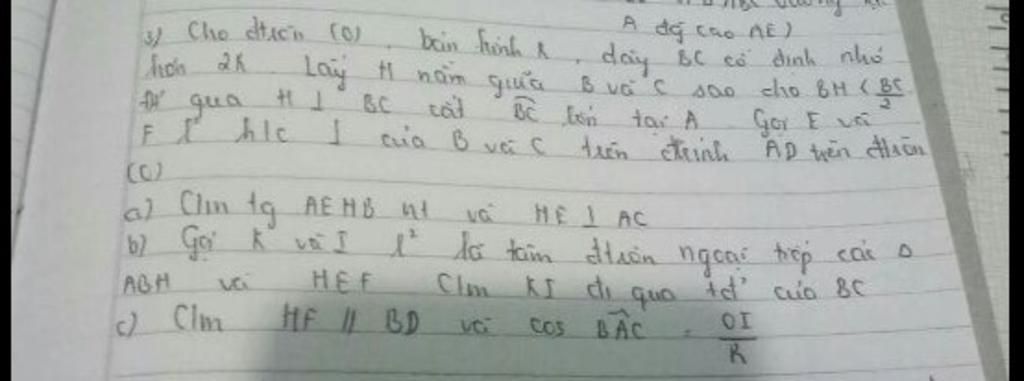 A đg cao AE)
3) Cho đtròn (O), bán kính R, dây BC cố định nhỏ
hơn 2R Lấy H nằm giữa B và C sao cho BH < BC/2
Đt qua H ⊥ BC cắt BC lớn tại A Gọi E và
F l² h/c ⊥ của B và C trên đkính AD trên đtròn
(O)
a) C/m tg AEHB nt và HE ⊥ AC
b) Gọi K và I l² là tâm đtròn ngoại tiếp các Δ
ABH và HEF C/m KI đi qua tđ' của BC
c) C/m HF // BD và cos BAC = OI/R